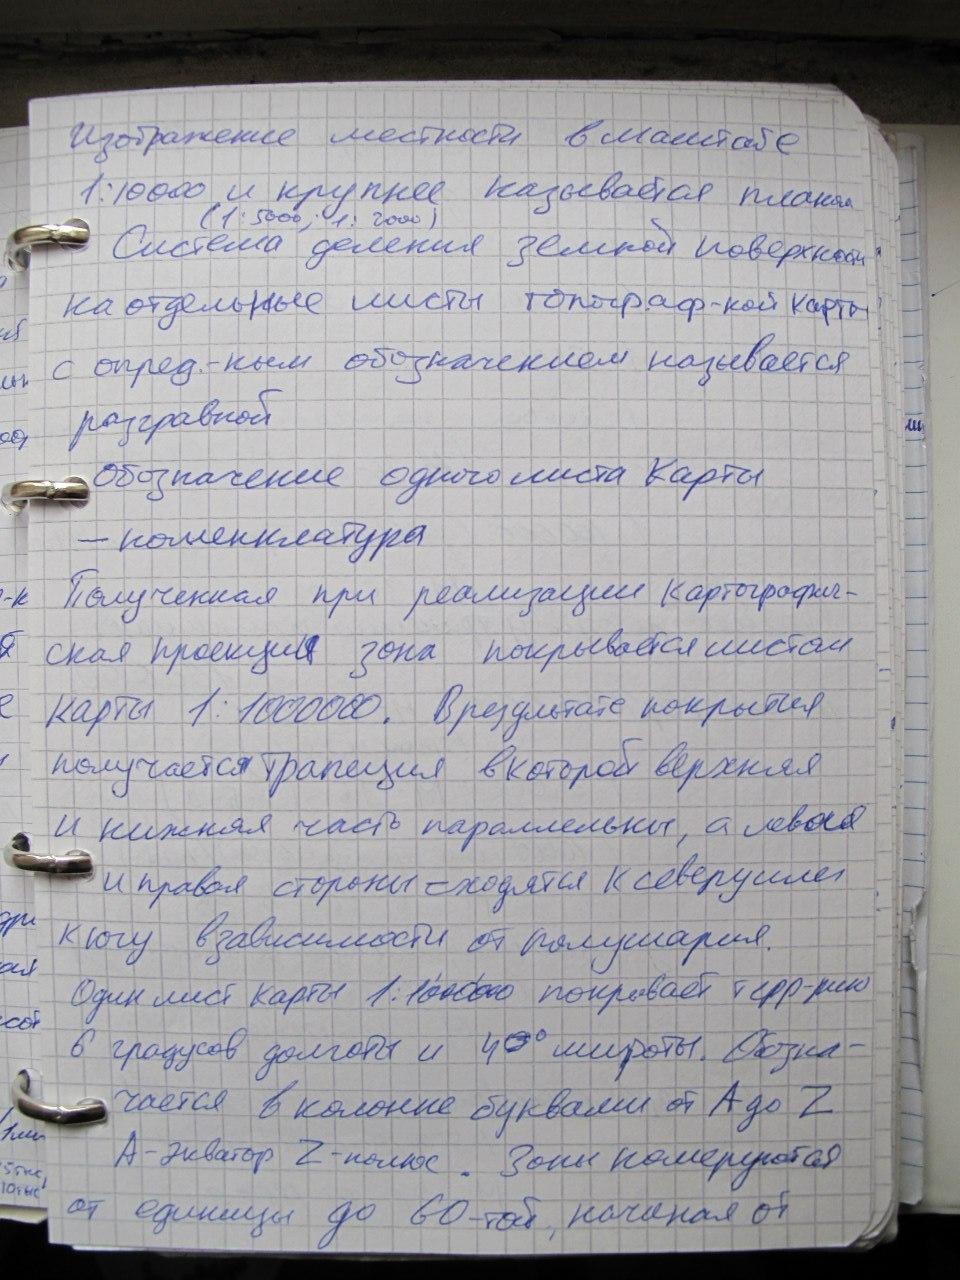 Изображение местности в маштабе
1:10000 и крупнее называется планом
(1:5000; 1:2000)
Система деления земной поверхности
на отдельные листы топограф-кой карты
с опред.-ным обозначением называется
разгравкой
Обозначение одного листа карты
– номенклатура
Полученная при реализации картографич-
ская проекция зона покрывается листом
карты 1:1000000. В результате покрытия
получается трапеция в которой верхняя
и нижняя часть параллельны, а левая
и правая стороны сходятся к северу или
к югу в зависимости от полушария.
Один лист карты 1:1000000 покрывает терр-рию
6 градусов долготы и 4° широты. Обозна-
чается в колонне буквами от A до Z
А-экватор Z-полюс. Зоны номеруются
от единицы до 60-той, начиная от